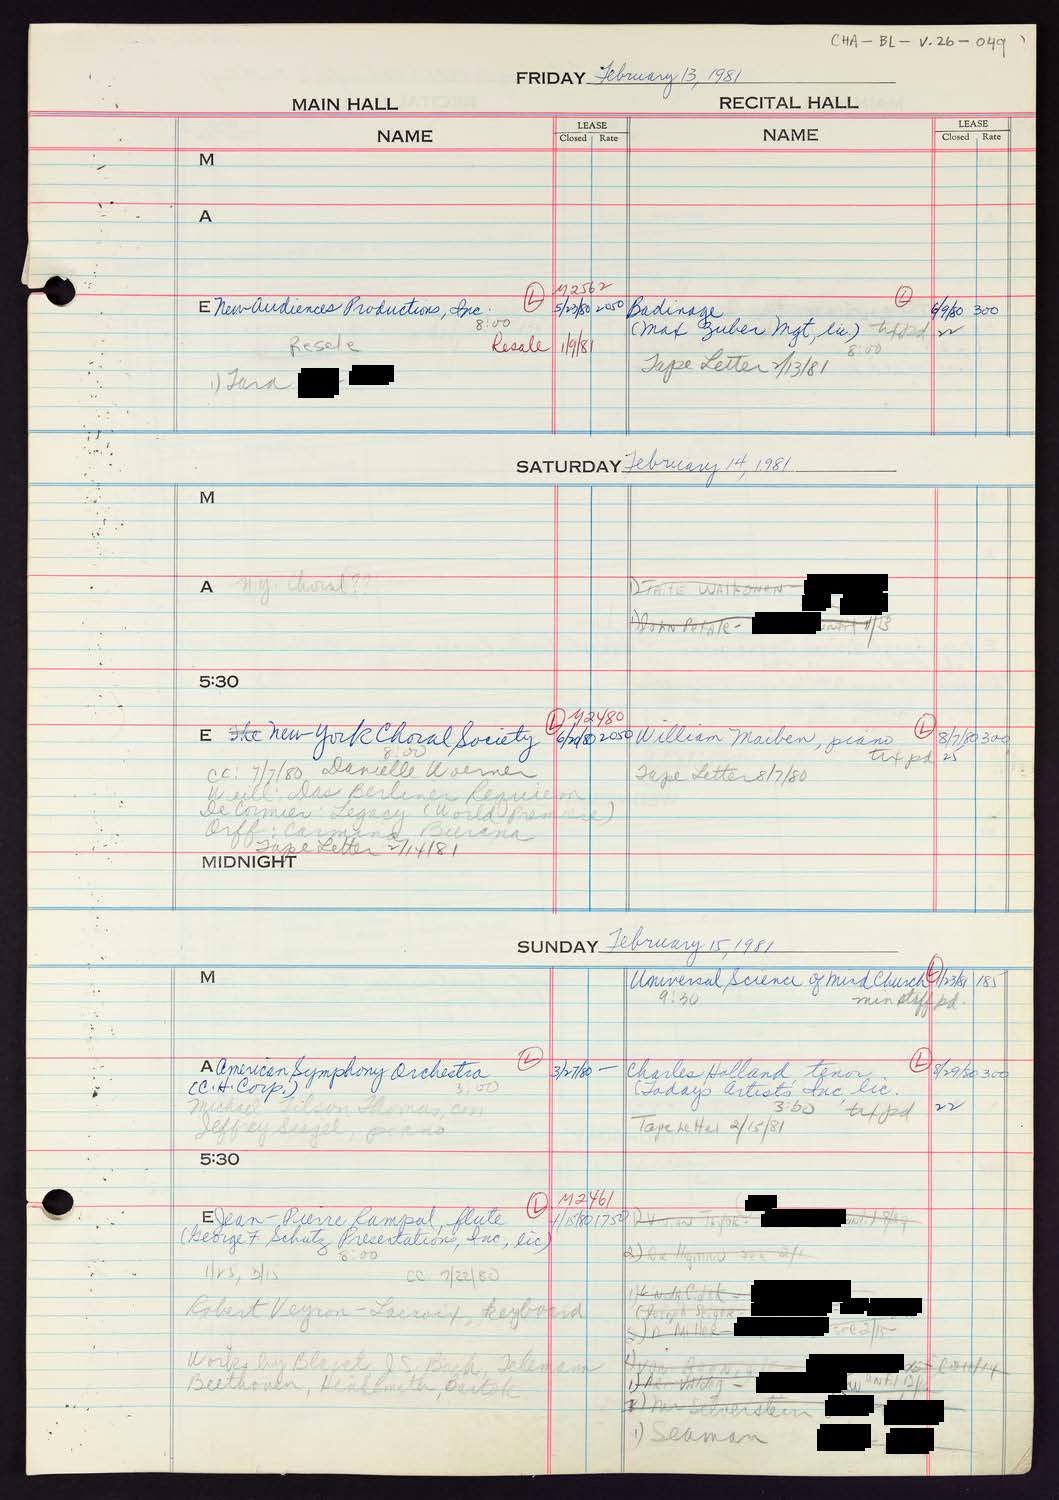 CHA - BL - V.26 - 049
FRIDAY February 13, 1981
MAIN HALL
RECITAL HALL
NAME
LEASE
Closed Rate
NAME
LEASE
Closed Rate
M
A
M2562
E New Audiences Productions, Inc. L 5/23/80 2050
8:00
Resale Resale 1/9/81
1) Tara
Badinage L 6/9/80 300
(Max Zuber Mgt, lic.) tax pd 22
8:00
Tape Letter 2/13/81
SATURDAY February 14, 1981
M
A N.Y. Choral??
1) TAITE WALKONEN -
1) John - 
5:30
M2480
E The New York Choral Society L 6/20/80 2050
8:00
cc: 7/7/80 Danielle Woerner
Weill: Das Berliner Requiem
DeCormier: Legacy (World Premiere)
Orff: Carmina Burana
Tape Letter 2/14/81
William Maiben, piano L 8/7/80 300
tax pd 25
Tape Letter 8/7/80
MIDNIGHT
SUNDAY February 15, 1981
M
Universal Science of Mind Church L 1/23/81 185
9:30 min staff pd.
A American Symphony Orchestra L 3/27/80 —
(C.H. Corp.) 3:00
Michael Tilson Thomas, con
Jeffrey Siegel, piano
Charles Holland tenor L 8/29/80 300
(Today's Artists Inc, lic.
3:00 tax pd 22
Tape Letter 2/15/81
5:30
M2461
E Jean-Pierre Rampal, flute L 1/15/80 1750
(George F. Schutz Presentations, Inc, lic)
8:00
1/25, 5/15 cc 7/22/80
Robert Veyron-Lacroix, keyboard
Works by Blavet, J.S. Bach, Telemann
Beethoven, Hindemith, Bartok
1) Vivian Taylor -
2)
1)
Miller -
Silverstein
1) Seaman